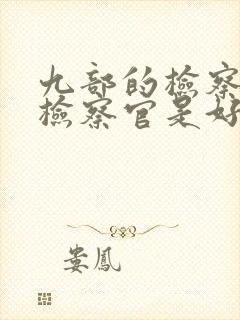 九部的檢察
檢察官是好
娄鳳